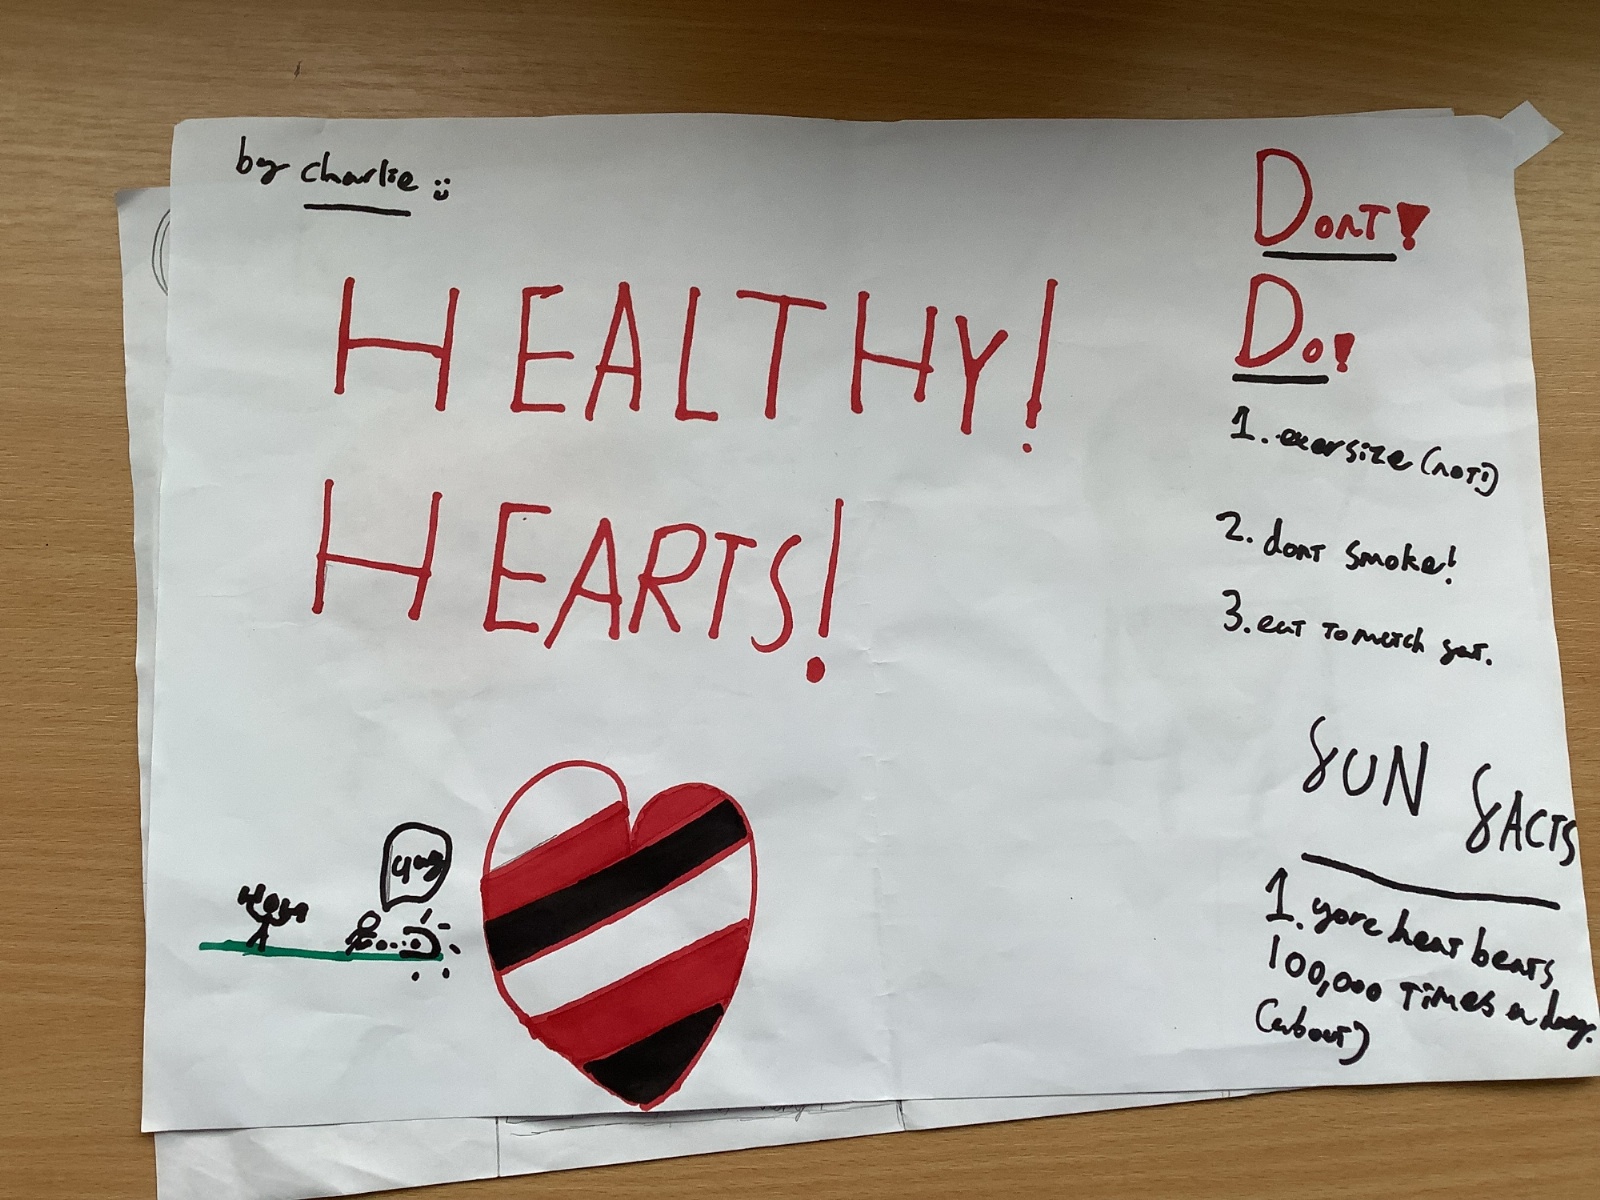 by charlie
HEALTHY!
HEARTS!
DONT!
DO!
1. exersize (not!)
2. dont smoke!
3. eat to mutch fat.
FUN FACTS
1. yore heat beats
100,000 times a day.
(about)